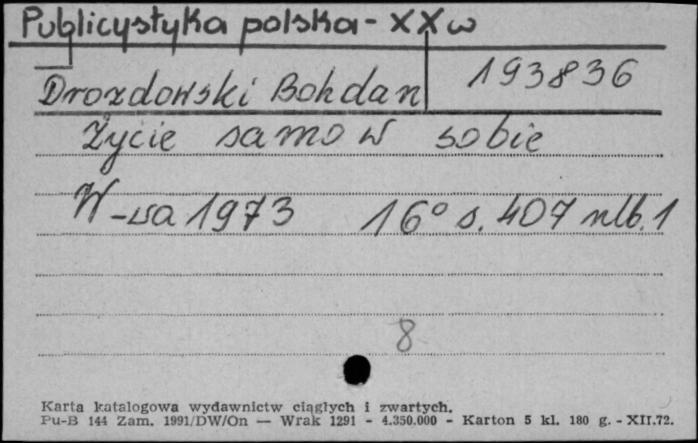 Publicystyka polska - XX w
Drozdowski Bohdan 193836
Życie samo w sobie
W-wa 1973 16° s. 407 nlb. 1
8
Karta katalogowa wydawnictw ciągłych i zwartych.
Pu-B 144 Zam. 1991/DW/On — Wrak 1291 - 4.350.000 - Karton 5 kl. 180 g. - XII.72.